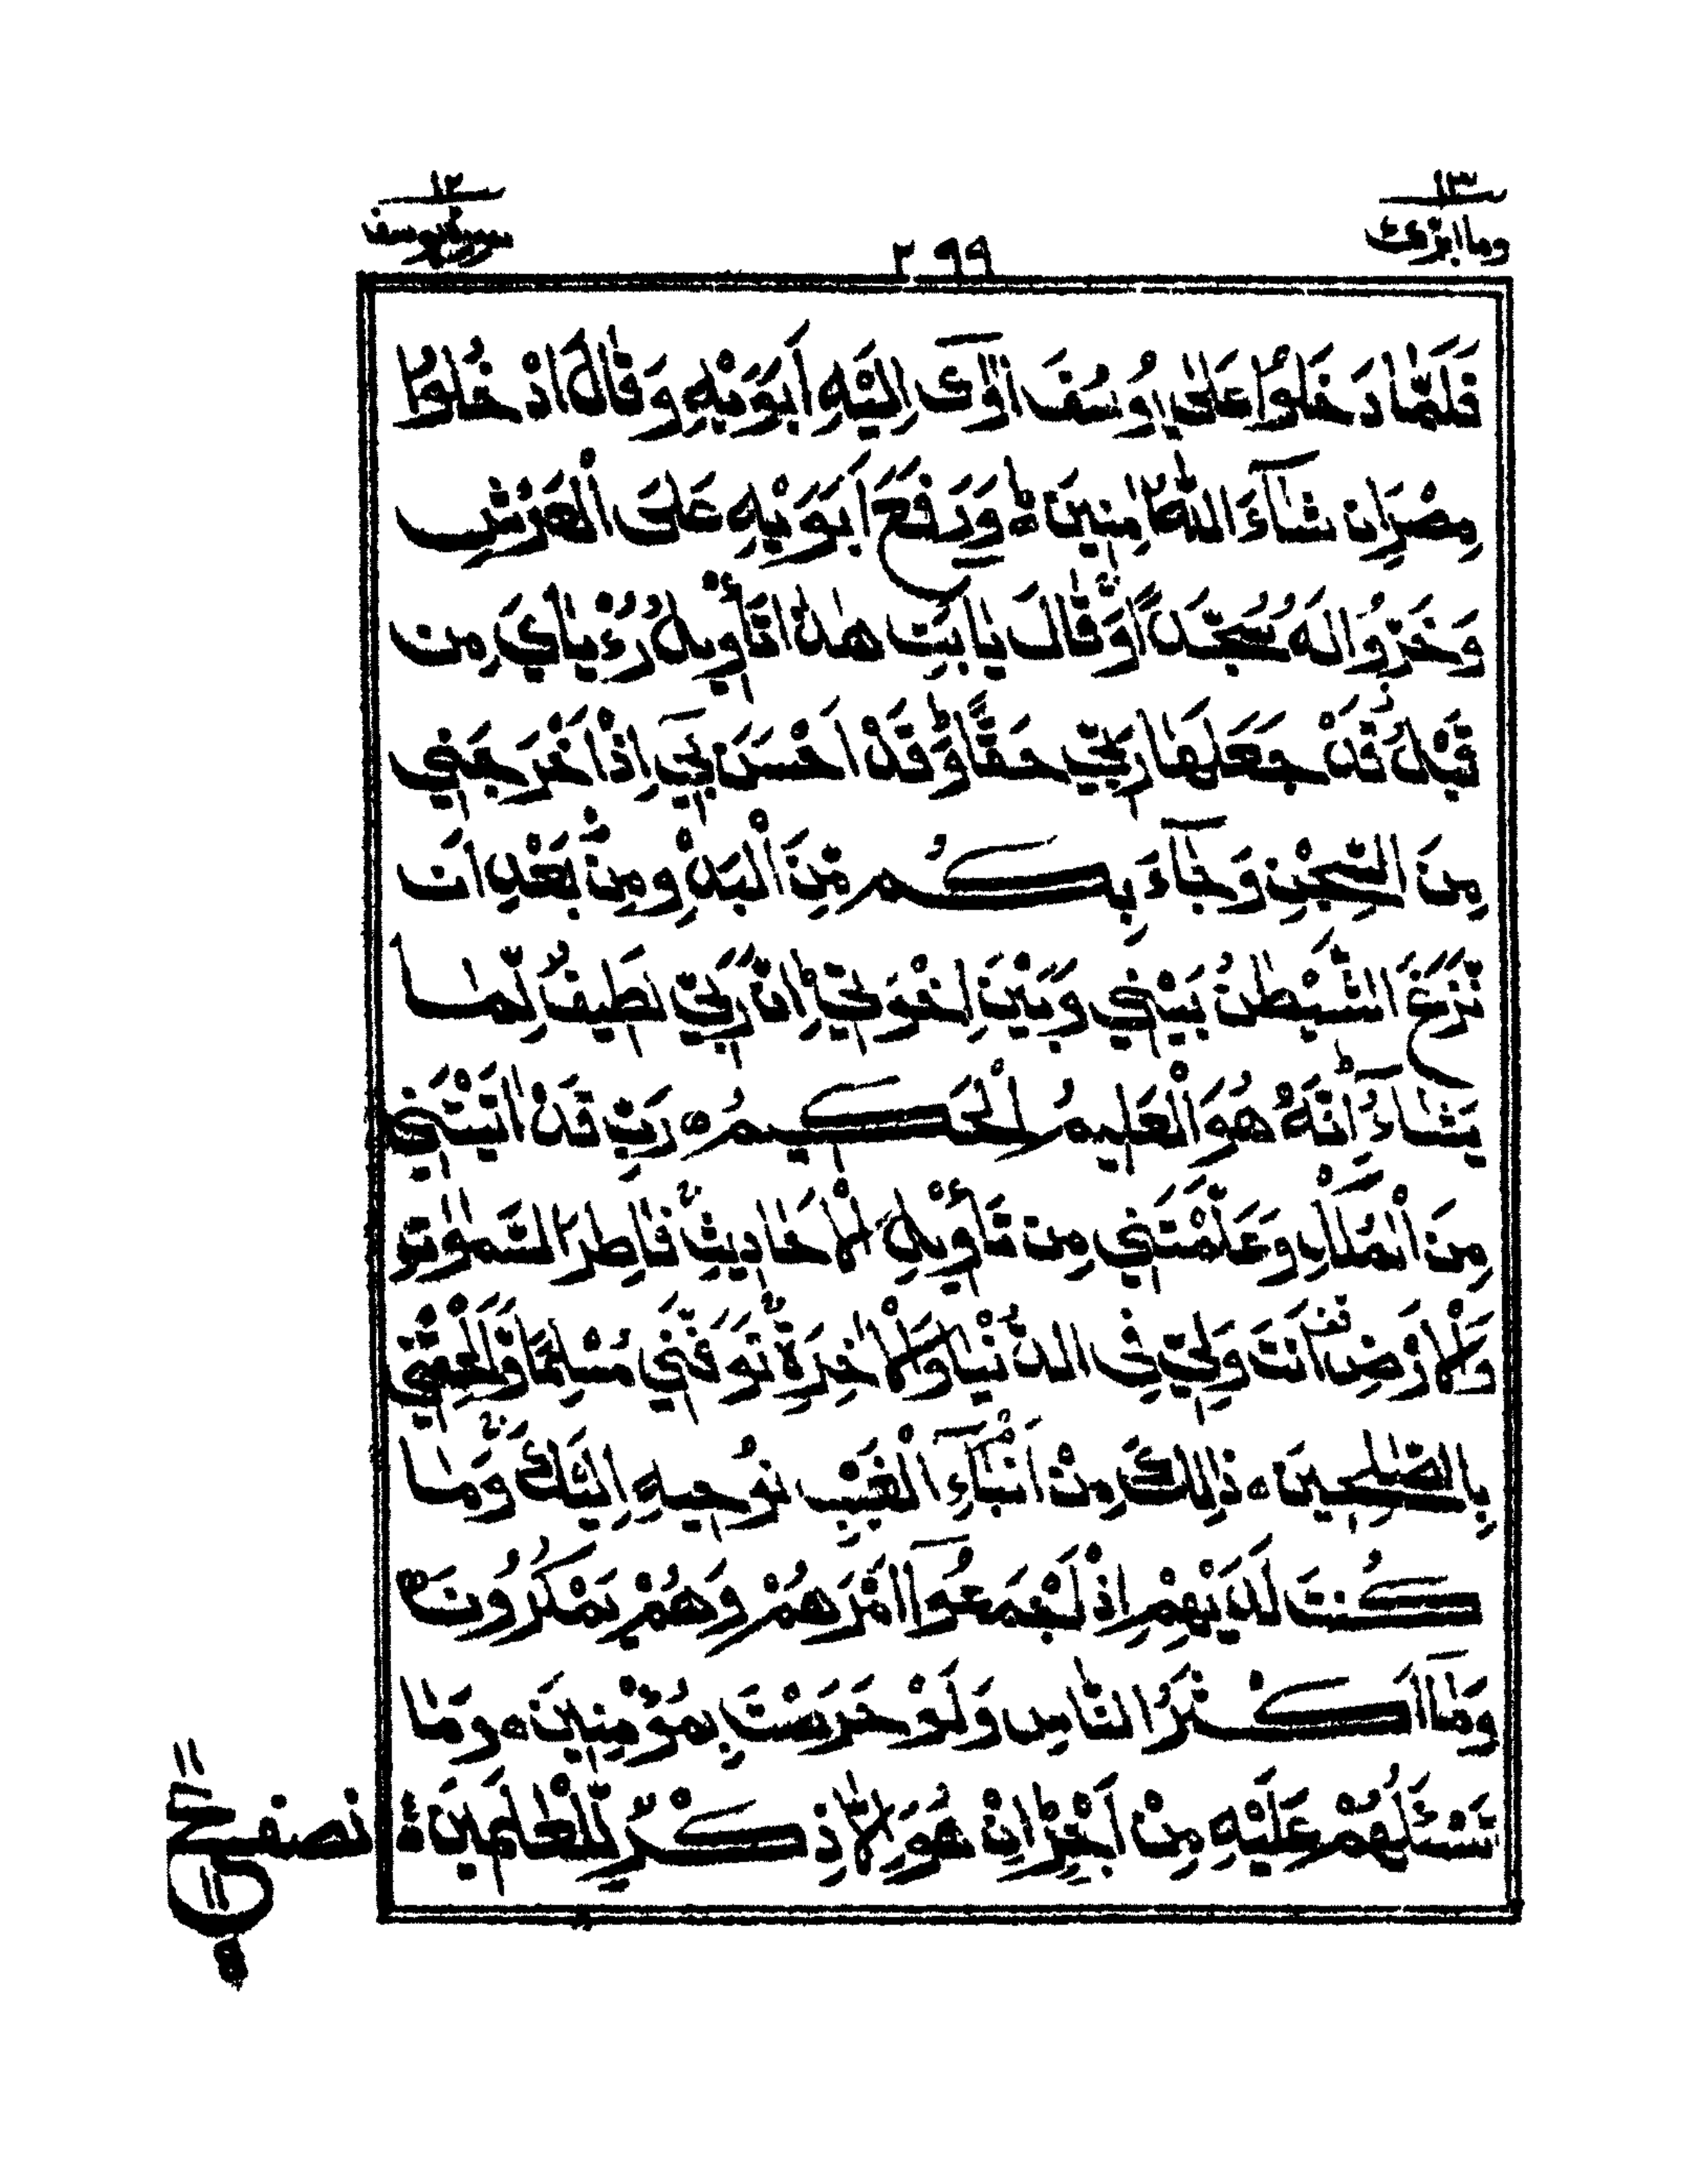 ١٣
وما ابرئ
٢٩٩
١٢
سورة يوسف
فَلَمَّا دَخَلُوْا عَلٰى يُوسُفَ اٰوٰٓى اِلَيْهِ اَبَوَيْهِ وَقَالَ ادْخُلُوْا
مِصْرَ اِن شَآءَ اللّٰهُ اٰمِنِيْنَ ؕ وَرَفَعَ اَبَوَيْهِ عَلَى الْعَرْشِ
وَخَرُّوْا لَهٗ سُجَّدًا وَّقَالَ يٰاَبَتِ هٰذَا تَأْوِيلُ رُءْيَايَ مِن
قَبْلُ قَدْ جَعَلَهَا رَبِّي حَقًّا وَقَدْ اَحْسَنَ بِيٓ اِذْ اَخْرَجَنِي
مِنَ السِّجْنِ وَجَآءَ بِكُم مِّنَ الْبَدْوِ مِنۢ بَعْدِ اَن
نَّزَغَ الشَّيْطٰنُ بَيْنِي وَبَيْنَ اِخْوَتِيْ اِنَّ رَبِّي لَطِيفٌ لِّمَا
يَشَآءُ اِنَّهٗ هُوَ الْعَلِيمُ الْحَكِيمُ ○ رَبِّ قَدْ اٰتَيْتَنِي
مِنَ الْمُلْكِ وَعَلَّمْتَنِي مِن تَأْوِيْلِ الْاَحَادِيثِ فَاطِرَ السَّمٰوٰتِ وَ
الْاَرْضِ اَنْتَ وَلِيّٖ فِي الدُّنْيَا وَالْاٰخِرَةِ تَوَفَّنِي مُسْلِمًا وَّاَلْحِقْنِي
بِالصّٰلِحِينَ ○ ذٰلِكَ مِنْ اَنْبَآءِ الْغَيْبِ نُوْحِيهِ اِلَيْكَ وَمَا
كُنتَ لَدَيْهِمْ اِذْ اَجْمَعُوٓا اَمْرَهُمْ وَهُمْ يَمْكُرُونَ ○
وَمَآ اَكْثَرُ النَّاسِ وَلَوْ حَرَصْتَ بِمُؤْمِنِينَ ○ وَمَا
تَسْـَٔلُهُمْ عَلَيْهِ مِنْ اَجْرٍ اِنْ هُوَ اِلَّا ذِكْرٌ لِّلْعٰلَمِيْنَ ○
نصف
ع